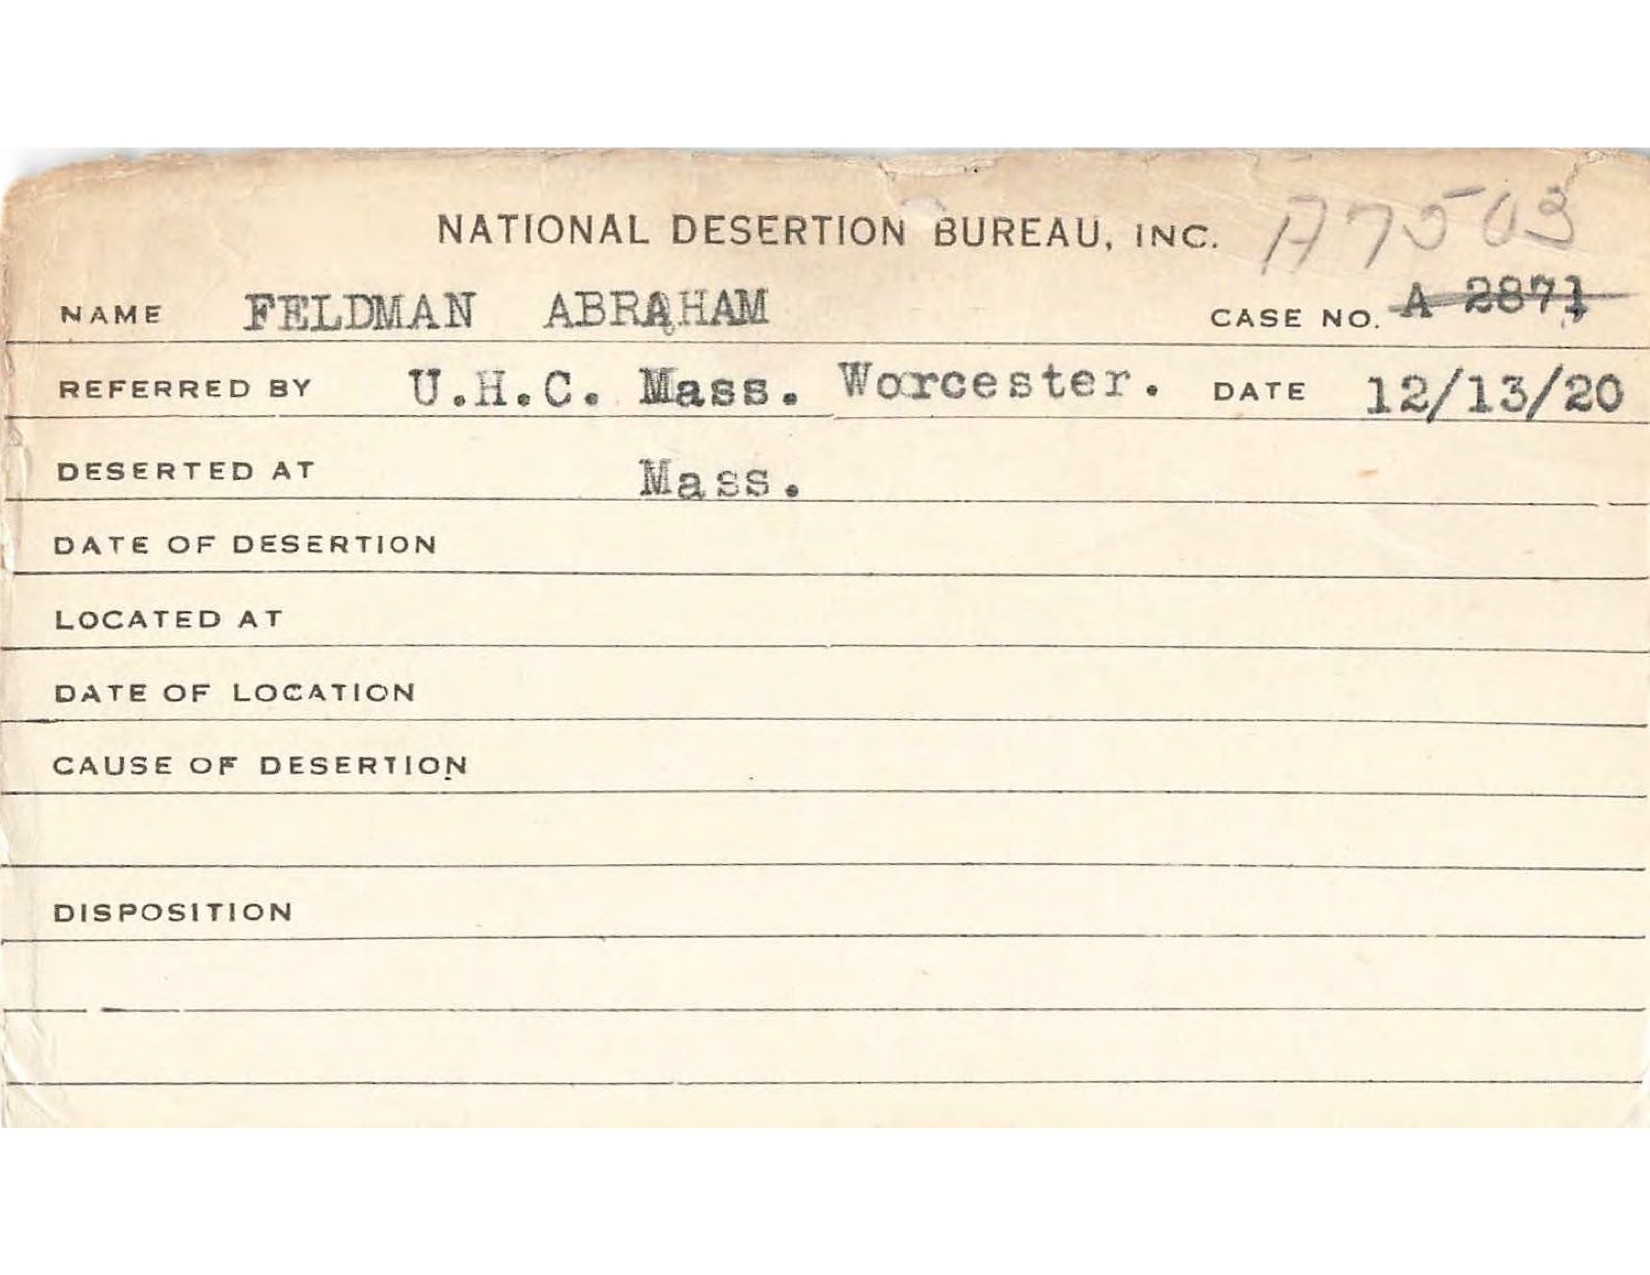 NATIONAL DESERTION BUREAU, INC. A7503
NAME FELDMAN ABRAHAM CASE NO. A 2871
REFERRED BY U.H.C. Mass. Worcester. DATE 12/13/20
DESERTED AT Mass.
DATE OF DESERTION
LOCATED AT
DATE OF LOCATION
CAUSE OF DESERTION
DISPOSITION